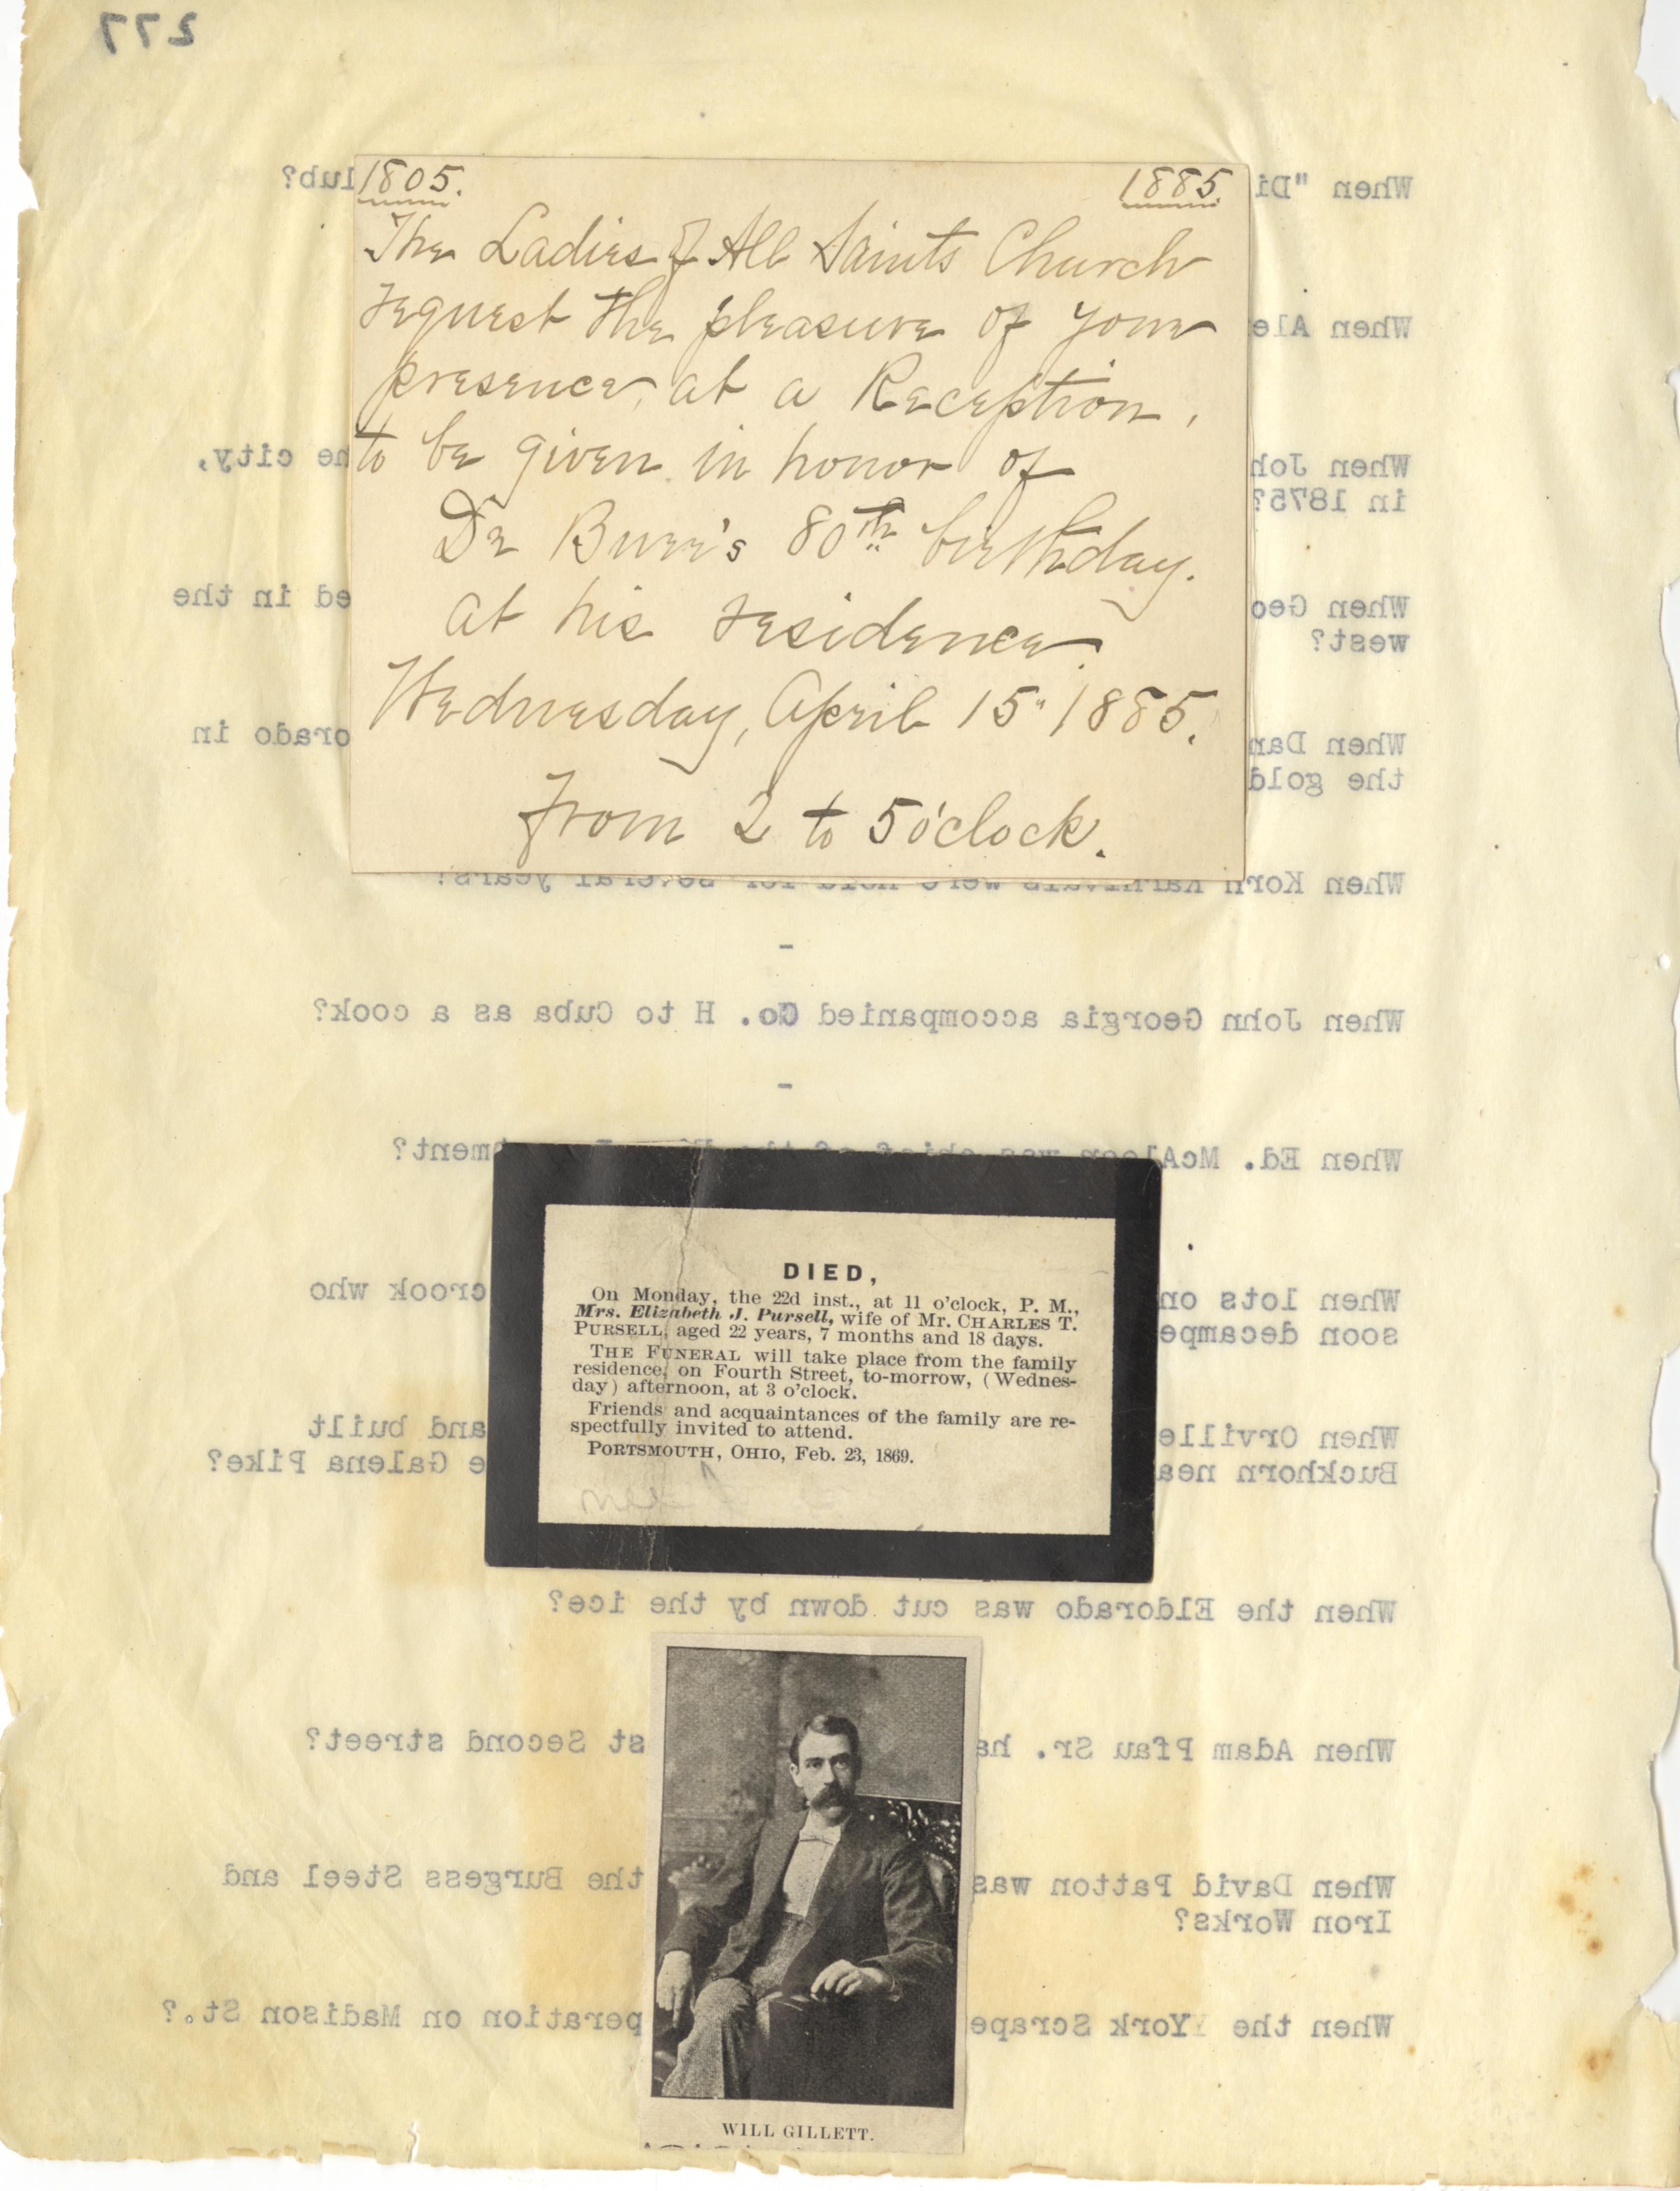 277
When "Di
lub?
1805.
1885.
The Ladies of All Saints Church
request the pleasure of your
presence, at a Reception,
to be given in honor of
Dr Burr's 80th birthday.
at his residence.
Wednesday, April 15" 1885.
From 2 to 5 o'clock.
When Ale
When Joh he city,
in 1875?
When Geo ed in the
west?
When Dan orado in
the gold
When Korn Karnivals were held for several years?
-
When John Georgia accompanied Co. H to Cuba as a cook?
-
When Ed. McAleer was chief of the tment?
When lots on crook who
soon decampe
When Orville and built
Buckhorn nea e Galena Pike?
DIED,
On Monday, the 22d inst., at 11 o'clock, P. M.,
Mrs. Elizabeth J. Pursell, wife of Mr. CHARLES T.
PURSELL, aged 22 years, 7 months and 18 days.
THE FUNERAL will take place from the family
residence, on Fourth Street, to-morrow, (Wednes-
day) afternoon, at 3 o'clock.
Friends and acquaintances of the family are re-
spectfully invited to attend.
PORTSMOUTH, OHIO, Feb. 23, 1869.
When the Eldorado was cut down by the ice?
When Adam Pfau Sr. ha st Second street?
When David Patton was the Burgess Steel and
Iron Works?
When the York Scrape peration on Madison St.?
WILL GILLETT.